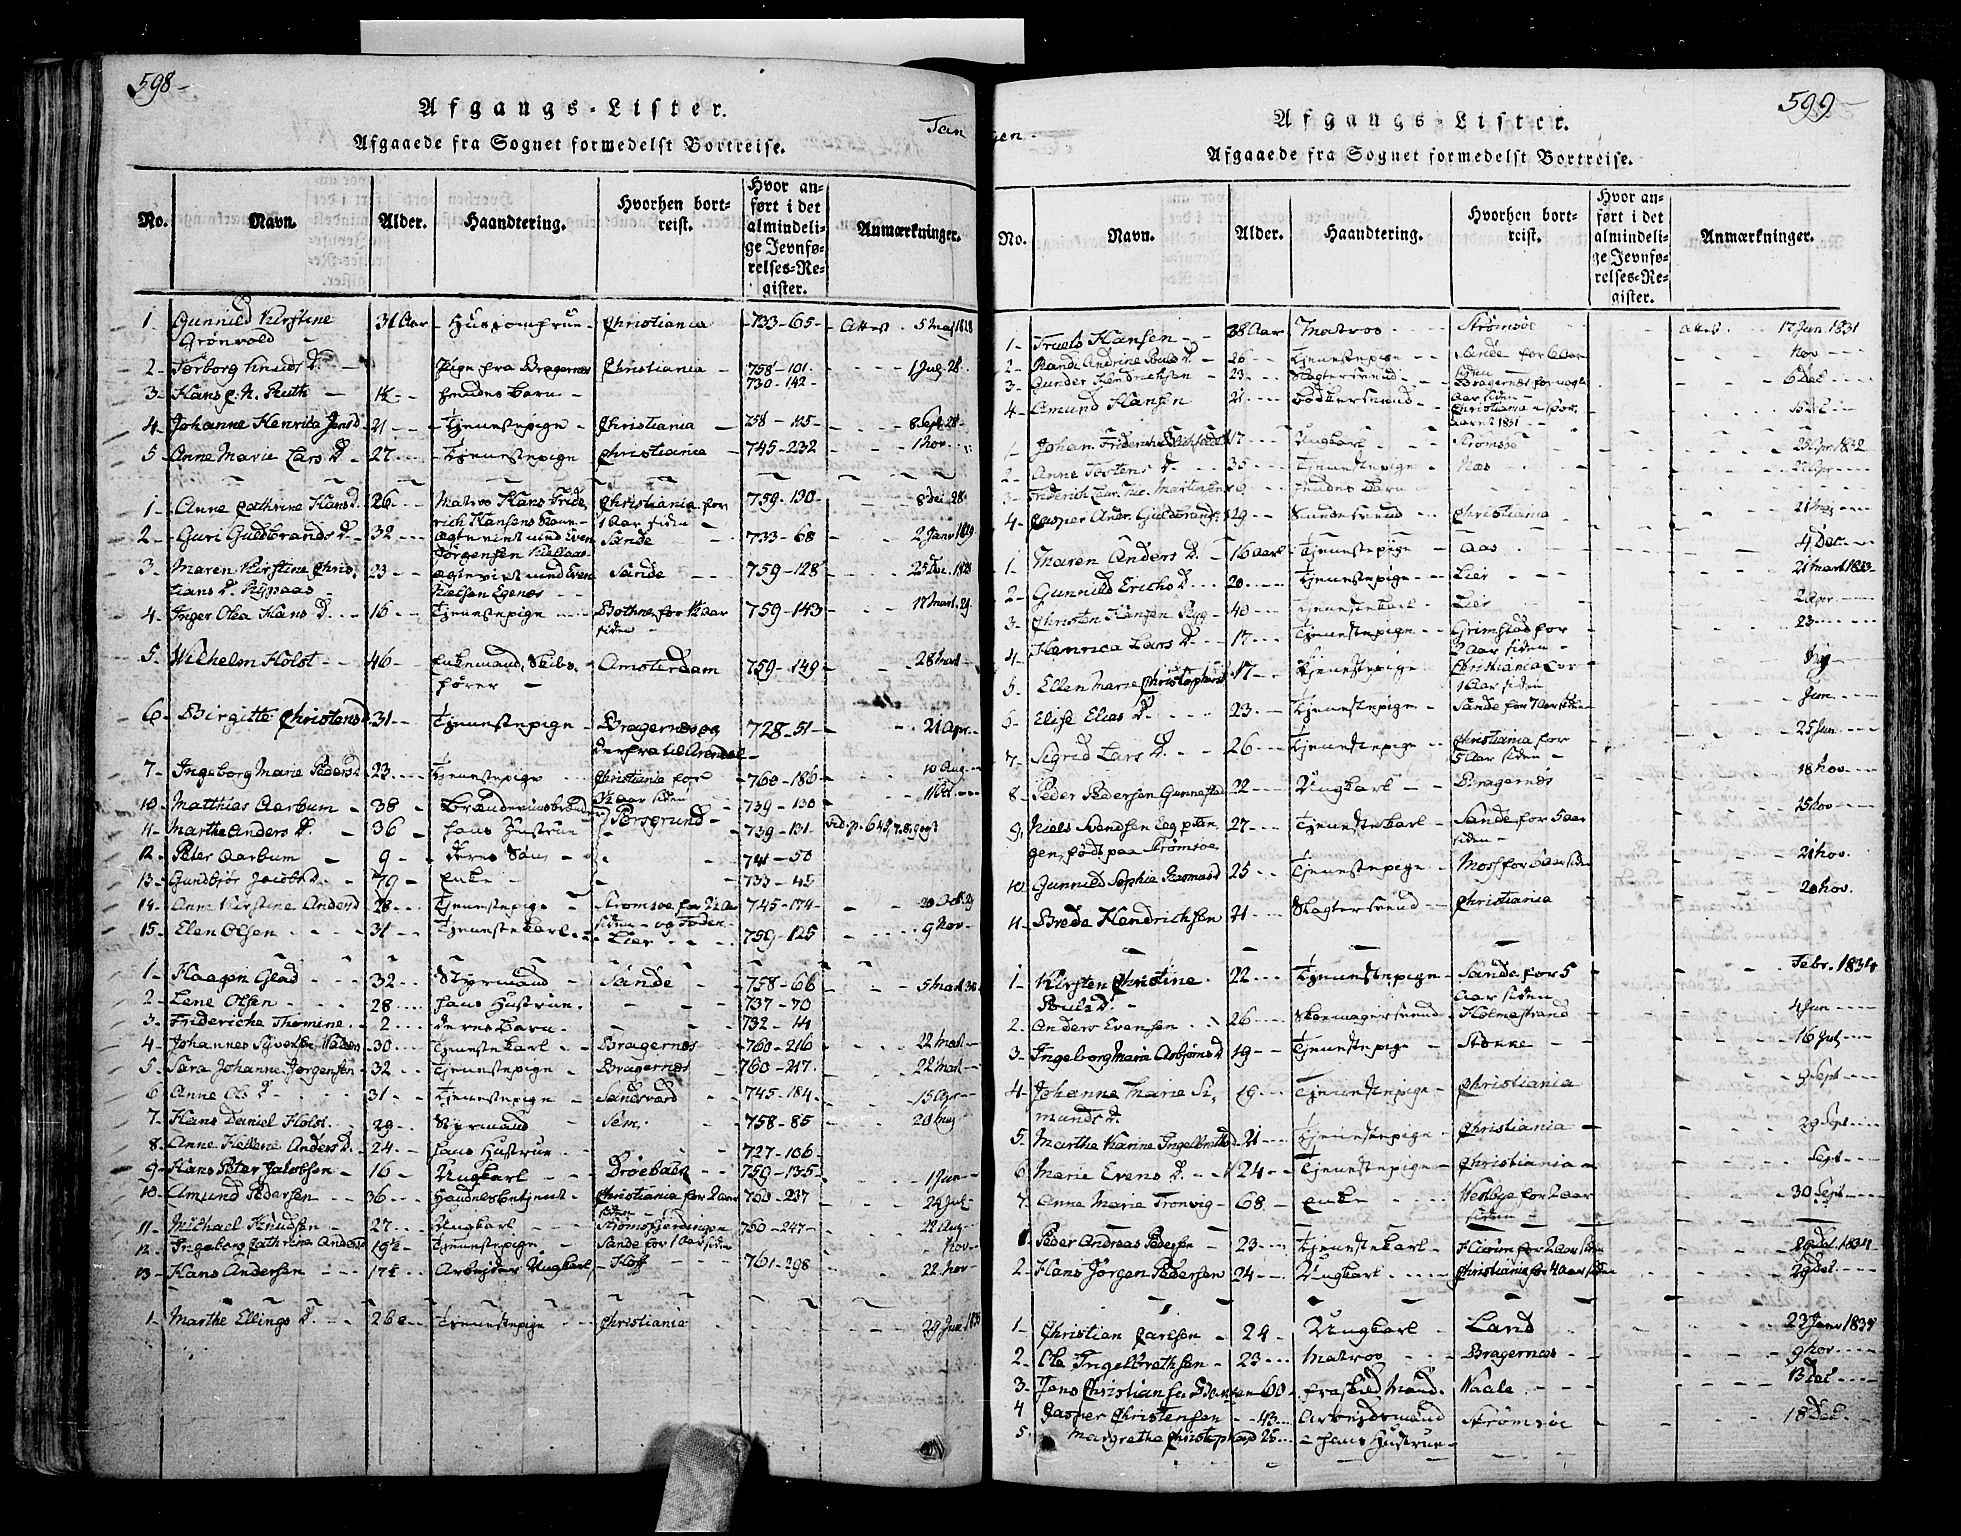 598
Afgangs-Lister.
Tan
Afgaaede fra Sognet formedelst Bortreise.
No. Navn. Alder. Haandtering. Hvorhen bortreist. Hvor anført i det almindelige Jevnførelses-Register. Anmærkninger.
1 Gunnild Kirstine Grønvold 31 Aar Huusjomfrue Christiania 733-65 Attest 5 Maj 1828
2 Torborg Knuds D. Pige fra Bragernes Christiania 758-101 1 Julj 28
3 Hans C. N. Ruth 1½ hendes Barn 730-142
4 Johanne Henrica Jans D 21 Tjenestepige Christiania 758-125 8 Sept 28
5 Anne Marie Lars D. 27 Tjenestepige Christiania 745-232 1 Nov
1 Anne Cathrine Hans D. 26 Matros Hans Fride rich Hansens Kone Christiania for 1 Aar siden 759-130 8 Dec 28
2 Guri Guldbrands D. 32 ægteviet med Even Jørgensen Sande 733-68 2 Janv 1829
3 Maren Kirstine Chris tians D. 23 ægteviet med Even Nielsen Egenes Sande 759-128 23 Dec. 1828
4 Inger Olea Hans D. 16 Tjenestepige Bothne for ½ Aar siden 759-143 17 Mart. 29
5 Wilhelm Holst 46 Enkemand, Skibs fører Amsterdam 759-149 28 Mart
6 Birgitte Christens D 31 Tjenestepige Bragernes og derfra til Arendal 728-51 21 Apr.
7 Ingeborg Marie Peders D 23 Tjenestepige Christiania for 3½ Aar siden 760-186 10 Aug.
10 Matthias Aarbum 38 Brændeviinsbrænder Porsgrund 739-130 1 Oct.
11 Marthe Anders D. 36 hans Hustrue 739-131
12 Peter Aarbum 9 deres Søn 741-50
13 Gundbjør Jacobs D. 79 Enke 733-45
14 Anne Kirstine Anders D 28 Tjenestepige Strømsøe for ½ Aar siden og Føden 745-174 20 Oct 29
15 Elen Olsen 31 Tjenestekarl Lier 759-125 9 Nov
1 Haagen Glad 32 Styrmand Sande 758-66 5 Mart 30
2 Lene Olsen 28 hans Hustrue. 737-70
3 Fridericha Thomine 2 deres Barn. 732-14
4 Johannes Syvertsen 30 Tjenestekarl Bragernes 760-216 22 Mart
5 Sara Johanne Jørgensen 32 Tjenestepige Bragernes 760-217. 22 Mart
6 Anne Ols D. 31 Tjenestepige Sandsværd 745-184 15 Apr
7 Hans Daniel Holst. 29 Styrmand Sem. 758-85 20 Maj
8 Anne Hellene Anders D. 24 hans Hustrue 727-106
9 Hans Peter Jacobsen 16 Ungkarl Drøebach 759-135 1 Jun
10 Amund Pedersen 36 Handelsbetjent Christiania for 2 Aar siden 760-237 24 Jul
11 Michael Knudsen 27 Ungkarl Strømsfjerdingen 760-247 22 Aug
12 Ingeborg Cathrine Anders D 19½ Tjenestepige Sande for 1 Aar siden Nov
13 Hans Andersen 17½ Arbejder Ungkarl Hoff 761-298 22 Nov
1 Marthe Ellings D. 26 Tjenestepige Christiania
599
Afgangs-Lister.
gen
Afgaaede fra Sognet formedelst Bortreise.
No. Navn. Alder. Haandtering. Hvorhen bortreist. Hvor anført i det almindelige Jevnførelses-Register. Anmærkninger.
1 Truels Hansen 38 Aar Matros Strømsøe Attest 17 Jun. 1831
2 Randi Andrine Pouls D. 26 Tjenestepige Sande for 6 Aar siden Nov
3 Gunder Hendrichsen 23 Slagtersvend Bragernes for nogle Aar siden 6 Dec
4 Amund Hansen 21 Bødkersvend Christiania for
1 Johan Friderich 17 Ungkarl Strømsøe 25 Apr. 1832
2 Anne Tostens D 35 Tjenestepige Næs Apr
3 Friderich Laur. Nic. Martinsen 6 hendes Barn
4 Casper Andr. Guldbrands. 29 Svend Christiania 21 Maj
1 Maren Anders D. 16 Aar Tjenestepige Aas 4 Dec.
2 Gunnild Erichs D. 20 Tjenestepige Lier 21 Mart 1833
3 Christen Hansen 40 Tjenestekarl Lier 2 Apr
4 Henrica Lars D. 17 Tjenestepige Grimstad for 2 Aar siden 23
5 Ellen Marie Christophers D 17 Tjenestepige Christiania for 1 Aar siden Maj
6 Elise Elias D. 23 Tjenestepige Sande for 7 Aar siden Jun
7 Sigrid Lars D. 26 Tjenestepige Christiania for 5 Aar siden 25 Jun
8 Peder Pedersen Gunnestad 22 Ungkarl Bragernes 18 Nov
9 Niels Svendsen Eeg, født paa Strømsøe 27 Tjenestekarl Sande for 5 Aar siden 25 Nov
10 Gunnild Sophie Rasmus D 25 Tjenestepige Moss for 6 Aar siden 21 Nov.
11 Brede Hendrichsen 21 Slagtersvend Christiania 20 Nov.
1 Kirsten Christine Pouls D. 22 Tjenestepige Sande for 5 Aar siden Febr. 1834
2 Anders Evensen 26 Skomagersvend Holmestrand 4 Jun
3 Ingeborg Marie Asbjørns D 19 Tjenestepige 16 Jul
4 Johanne Marie Si, munds D. 19 Tjenestepige Christiania 9 Sept
5 Marthe Karine Ingelbreths D 21 Tjenestepige Christiania 29 Sept.
6 Marie Evens D. 24 Tjenestepige Christiania Sept
7 Anne Marie Tronvig 68 Enke Vestbye for 2 Aar siden 30 Sept
1 Peder Andreas Pedersen 23 Tjenestekarl Hurum for 2 Aar siden 29 Dec. 1834
2 Hans Jørgen Pedersen 24 Ungkarl Christiania for 4 Aar siden 29 Dec
1 Christian Carlsen 24 Ungkarl Land 23 Janv 1835
2 Ole Ingelbrethsen 23 Matros Bragernes 9 Nov
3 Jens Christiansen 60 fraskild Mand. Vaale 13 Dec
4 Casper Christensen 43 Arbejdsmand Strømsøe 18 Dec
5 Margrethe Christophers D 25 hans Hustrue